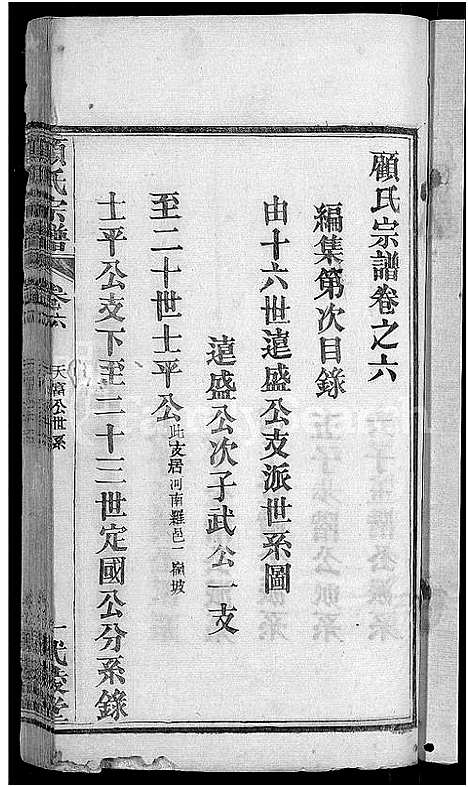 顧氏宗譜卷之六
編集第次目錄
由十六世遠盛公支派世系圖
遠盛公次子武公一支
至二十世士平公此支居河南羅邑二嶺坡
士平公支下至二十三世定國公分系錄
顧氏宗譜
卷六
天富公世系
武陵堂